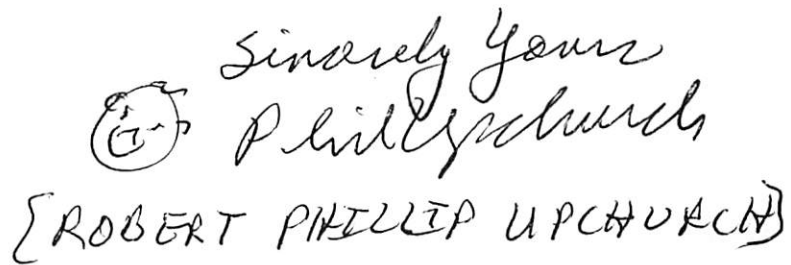 Sincerely Yours
Phil Upchurch
[ROBERT PHILLIP UPCHURCH]